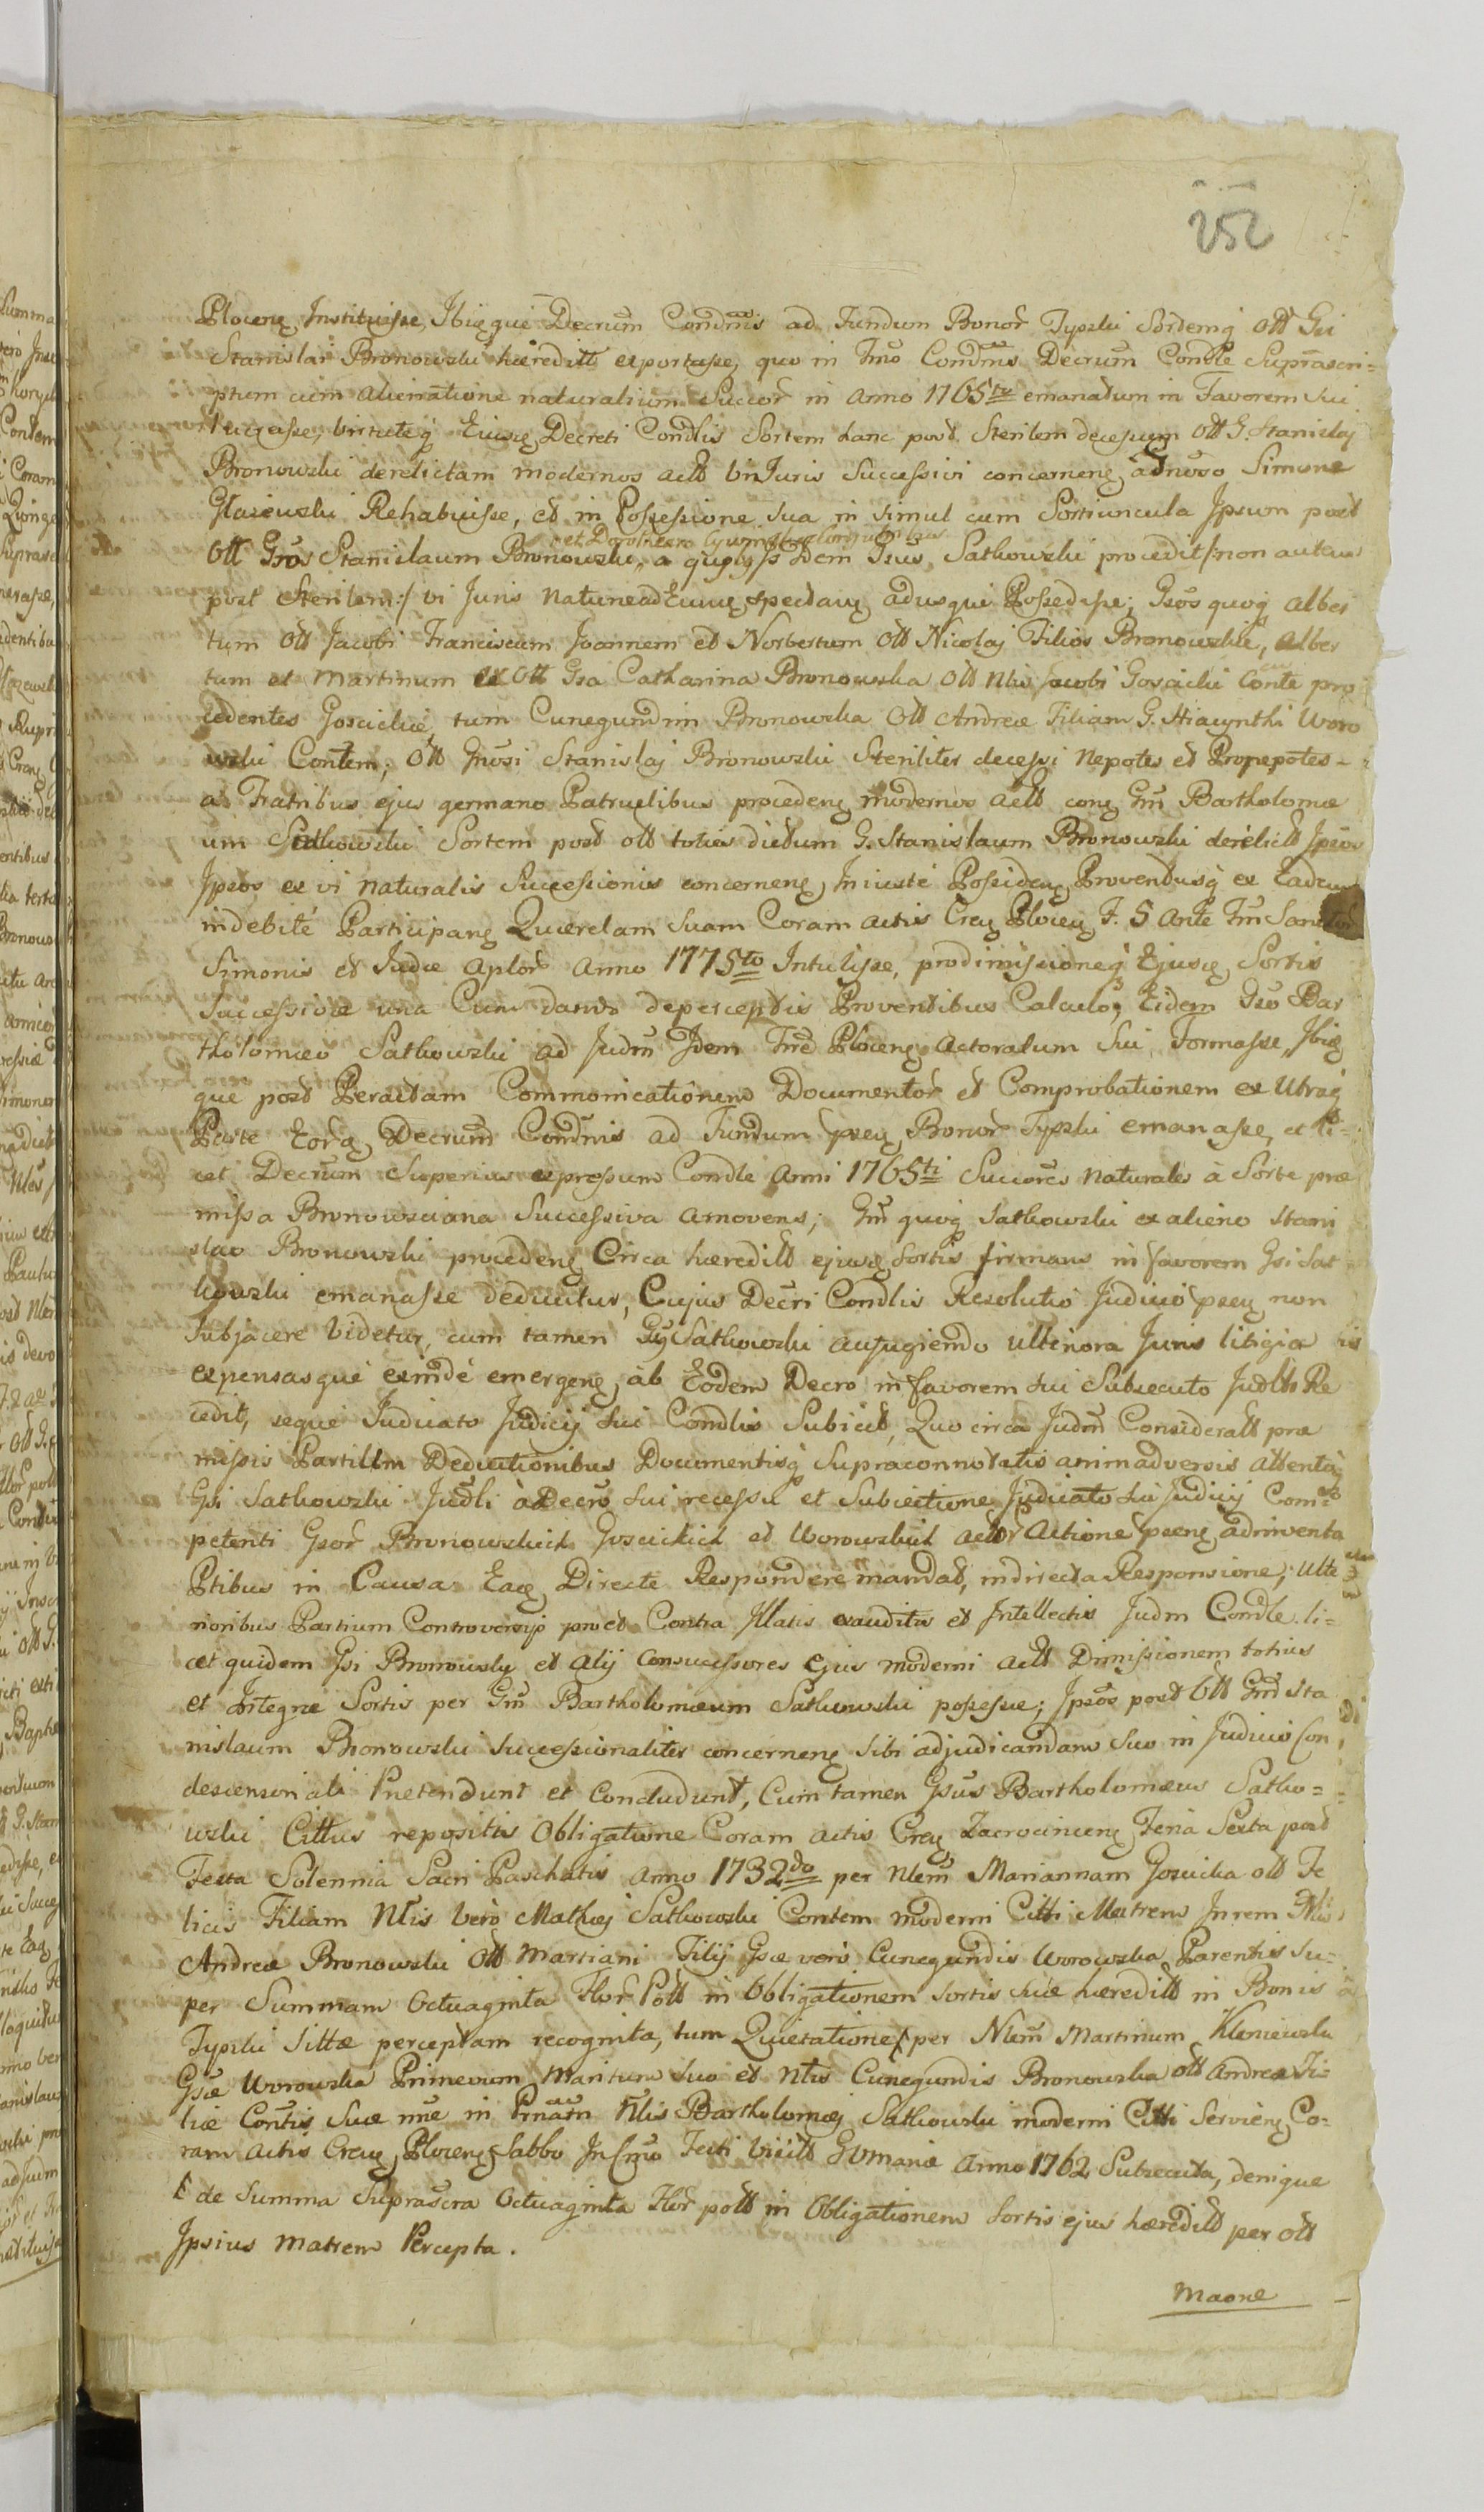 252
Plocenȩ Instituisse, Ibiȩque Decrum Condnis ad Fundum Bonor Typzki Sordemq̃ ott Gsi
Stanislai Bronowski hæreditt exportasse, quo in Tmo Condnis Decrum Condle Suprascri=
ptum cum alienatione naturalium Succor in anno 1765to emanatum in Favorem sui
lucrasse, virtuteq̃ Eiusȩ Decreti Condlis Sortem hanc post Sterilem decessum ott G. Stanislaj
Bronowski derelictam modernos actt vi Juris Successivi concernenȩ adnvso Simone
Rehabuisse, et in Possessione sua in simul cum Sortiuncula Ipsum post
et Dorotheam
ott Gsos Stanislaum Bronowski, a quibus Idem Gsus Satkowski procedit /:non autem
post Sterilem:/ vi Juris naturæ ad Eunȩ spectanȩ adusque Possedisse; Gsos quoq̃ alber
tum ott Jacobi Franciscum Joannem et Norbertum ott Nicolaj Filios Bronowskie, alber
tum et Martinum ex ott Gsa Catharina Bronowska ott Nlis Jacobi Goscicki Conte pro
cedentes Goscickie, tum Cunegundim Bronowska ott Andreæ Filiam G. Hiacynthi Woro
wski Contem; ott Gnosi Stanislaj Bronowski Steriliter decessi Nepotes et Pronepotes -
a Fratribus ejus germano Patruelibus procedenȩ modernos actt conȩ Gm Bartholomæ
um Satkowski Sortem post ott toties dictum G. Stanislaum Bronowski derelictt Ipsos
Ipsos ex vi naturalis Successionis concernenȩ, Iniuste Possidenȩ Proventusq̃ ex Eadem
indebite Participanȩ Querelam suam Coram actis Crenȩ Plocenȩ F. 5 Ante Fm Sanctor
Simonis et Judæ Aplor Anno 1775to Intulisse, prodimissioneq̃ Ejusȩ Sortis
Successivæ una Cum dando de perceptis Proventibus Calculo, Eidem Gso Bar
tholomæo Satkowski ad Judm Idem Tmre Plocenȩ actoratum sui Formasse, Ibiȩ
que post Peractam Commonicationem Documentor et Comprobationem ex Utraq̃
Parte Eorȩ Decrum Condnis ad Fundum psenȩ Bonor Typzki emanasse, et li=
cet Decrum Superius expressum Condle Anni 1765ti Succores naturales à Sorte præ
missa Bronowsciana Successiva amovens; Gm quoq̃ Satkowski ex alieno Stani
slao Bronowski procedenȩ Circa hæreditt ejusȩ Sortis firmans in favorem Gsi Sat
kowski emanasse deducitur, Cujus Decri Condlis Resolutio Judicio psenȩ non
Subjacere videtur, cum tamen Gsus Satkowski aufugiendo ulteriora Juris litigia
expensasque exinde emergenȩ, ab Eodem Decro in favorem sui Subsecuto Judltr Re
cedit, seque Judicato Judicij sui Condlis Subicit, Quo circa Judm Consideratt præ
missis Partilm Deductionibus Documentisq̃ Supraconnotatis animadversis attentoq̃
Gsi Satkowski Judli à Decro sui recessu et Subiectione Judicato sui Judicij Com=
petenti Gsor Bronowskich Goscickich et Worowskich actor Actione psenȩ adinventa
Ptibus in Causa Eaȩ Directe Respondere mandat, indirecta Responsione; Ulte
rioribus Partium Controversijs pro et Contra Illatis exauditis et Intellectis Judm Condle li=
cet quidem Gsi Bronowscy et alij Consuccessores Ejus moderni actt Dimissionem totius
et Integræ Sortis per Gm Bartholomæum Satkowski possessæ; Ipsos post ott Gm Sta
nislaum Bronowski Successionaliter concernenȩ sibi adjudicandam suo in Judicio Con
descensoriali Prætendunt et Concludunt, Cum tamen Gsus Bartholomæus Satko=
wski Cittus repositis Obligatione Coram actis Crenȩ Zacrocimenȩ Feria Sexta post
Festa Solennia Sacri Paschatis Anno 1732do per Nlem Mariannam Goscicka ott Fe
licis Filiam Nlis vero Mathiæ Satkowski Contem moderni Citti Matrem In rem Nlis
Andreæ Bronowski ott Martiani Filij Gsæ vero Cunegundis Worowska Parentis su=
per Summam Octuaginta Flor Pott in Obligationem Sortis suæ hæreditt in Bonis
Typzki Sittæ perceptam recognita, tum Quietatione per Nlem Martinum Kleniewski
Gsæ Worowska Primevum Maritum suo et Nlis Cunegundis Bronowska ott Andreæ Fi=
liæ Contis suæ nne in Prnam Nlis Bartholomæj Satkowski moderni Citti Servienȩ Co=
ram actis Crenȩ Plocenȩ Sabbo In Cmo Festi Visitt Gvmariæ Anno 1762 Subsecuta, denique
de Summa Suprascra Octuaginta Flor pott in Obligationem Sortis ejus hæreditt per ott
Ipsius Matrem Percepta.
Maone